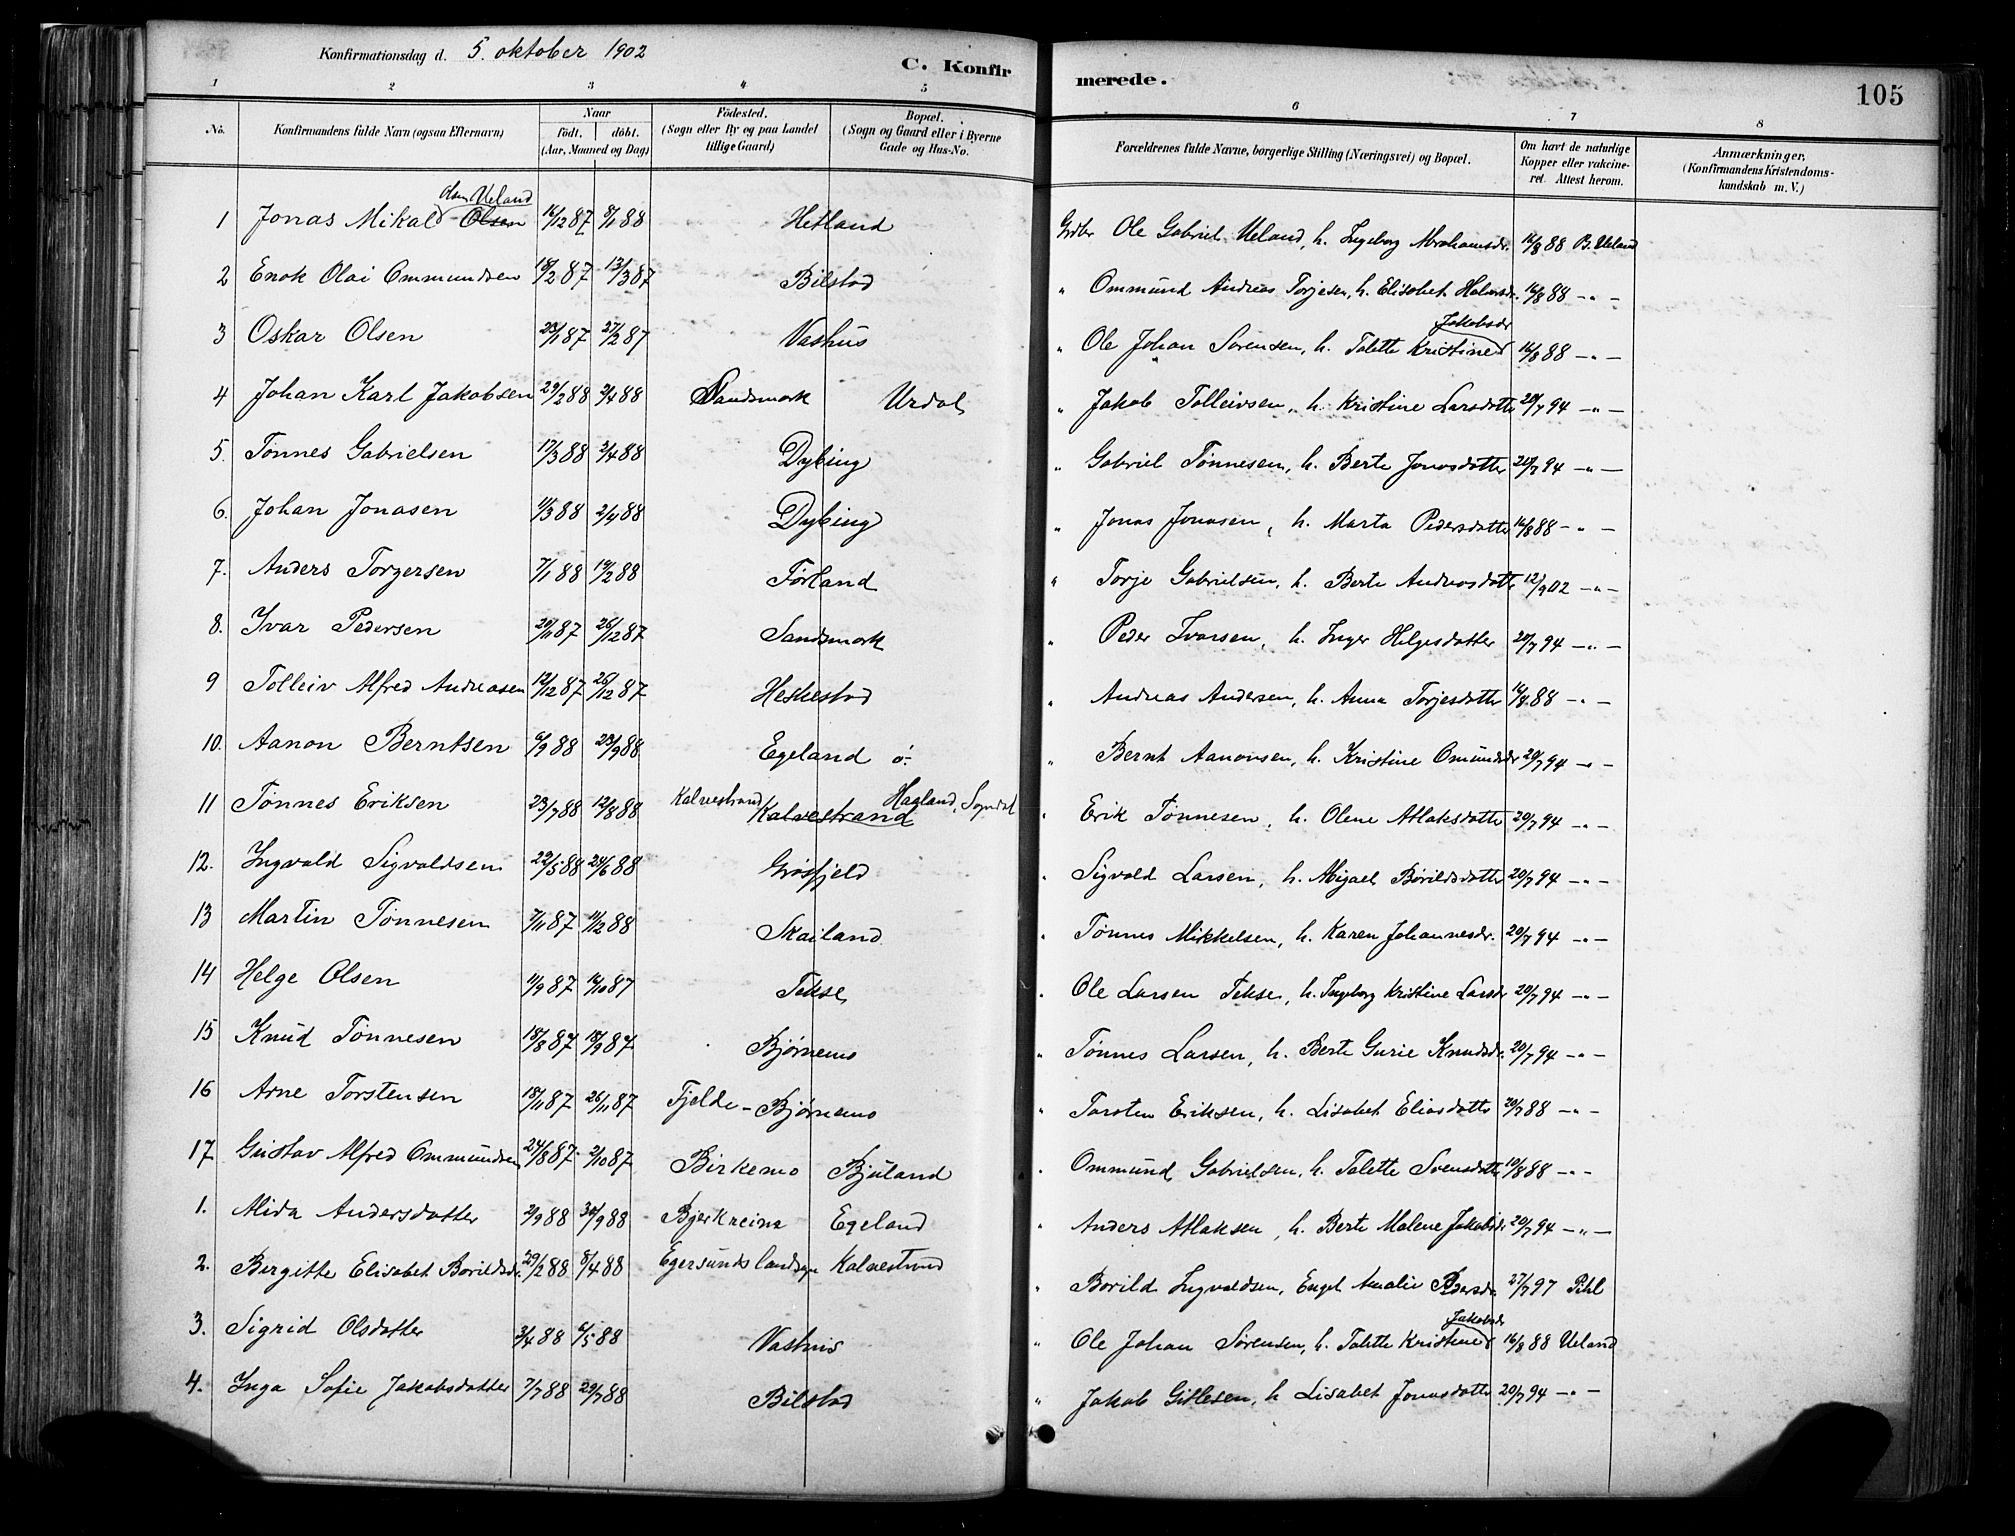 Konfirmationsdag d. 5. oktober 1902
C. Konfirmerede.
105
1 2 3 4 5 6 7 8
No.
Konfirmandens fulde Navn (ogsaa Efternavn)
Naar
født. døbt.
(Aar, Maaned og Dag)
Fødested.
(Sogn eller By og paa Landet
tillige Gaard)
Bopæl.
(Sogn og Gaard eller i Byerne
Gade og Hus-No.
Forældrenes fulde Navne, borgerlige Stilling (Næringsvei) og Bopæl.
Om havt de naturlige
Kopper eller vakcine-
ret. Attest herom.
Anmærkninger,
(Konfirmandens Kristendoms-
kundskab m. V.)
Olsen Ueland
1 Jonas Mikal Olsen 16/12 87 8/1 88 Hetland Grdbr Ole Gabriel Ueland, h. Ingeborg Abrahamsdr. 16/8 88 B. Ueland
2 Enok Olai Ommundsen 18/2 87 13/3 87 Bilstad " Ommund Andreas Torjesen, h. Elisabet 16/8 88 - " -
Jakobsdr
3 Oskar Olsen 23/1 87 27/2 87 Vashus " Ole Johan Sørensen, h. Talette Kristine 16/8 88 - " -
4 Johan Karl Jakobsen 29/2 88 2/4 88 Sandsmark Urdal " Jakob Tolleivsen, h. Kristine Larsdotter 20/7 94 - " -
5. Tønnes Gabrielsen 17/3 88 2/4 88 Dybing " Gabriel Tønnesen, h. Berte Jonasdotter 20/7 94 - " -
6. Johan Jonasen 11/3 88 2/4 88 Dybing " Jonas Jonasen, h. Marta Pedersdotter 16/8 88 - " -
7. Anders Torgersen 7/1 88 19/2 88 Førland " Torje Gabrielsen, h. Berte Andreasdott 12/9 02 - " -
8. Ivar Pedersen 20/11 87 26/12 87 Sandsmark " Peder Ivarsen, h. Inger Helgesdotter 20/7 94 - " -
9 Tolleiv Alfred Andreasen 12/12 87 26/12 87 Heskestad " Andreas Andersen, h. Anna Torjesdotter 16/8 88 - " -
10. Aanon Berntsen 6/9 88 23/9 88 Egeland ø. " Bernt Aanonsen, h. Kristine Omundsdr 20/7 94 - " -
11 Tønnes Eriksen 23/7 88 12/8 88 Kalvestrand Kalvestrand Hagland, Sogndal " Erik Tønnesen, h. Olene Atlaksdotter 20/7 94 - " -
12. Ingvald Sigvaldsen 22/5 88 24/6 88 Grøsfjeld " Sigvald Larsen, h. Abigael Børildsdotter 20/7 94 - " -
13 Martin Tønnesen 7/11 87 11/2 88 Skailand " Tønnes Mikkelsen, h. Karen Johannesdr. 20/7 94 - " -
14 Helge Olsen 11/9 87 16/10 87 Tekse " Ole Larsen Tekse, h. Ingeborg Kristine Larsdr 20/7 94 - " -
15 Knud Tønnesen 18/8 87 18/9 87 Bjørnemo " Tønnes Larsen, h. Berte Gurie Knudsdr. 20/7 94 - " -
16 Arne Torstensen 18/11 87 26/11 87 Fjelde - Bjørnemo " Torsten Eriksen, h. Lisabet Eliasdotte 20/7 88 - " -
17 Gustav Alfred Ommundsen 24/8 87 2/10 87 Birkemo Bjuland " Ommund Gabrielsen, h. Talette Svensdotte 19/8 88 - " -
1. Alida Andersdotter 2/9 88 30/9 88 Bjerkreim Egeland " Anders Atlaksen, h. Berte Malene Jakobsdr 20/7 94 - " -
2. Bergitte Elisabet Borildsdr. 29/2 88 8/4 88 Egersunds landsogn Kalvestrand " Borild Ingvaldsen, Engel Amalie Pedersdr. 27/7 97 Pihl
Jakobsdr
3. Sigrid Olsdotter 3/4 88 6/5 88 Vashus " Ole Johan Sørensen, h. Talette Kristine 16/8 88 Ueland
4. Inga Sofie Jakobsdotter 7/7 88 29/7 88 Bilstad " Jakob Gitlesen, h Lisabet Jonasdotte 20/7 94 - " -